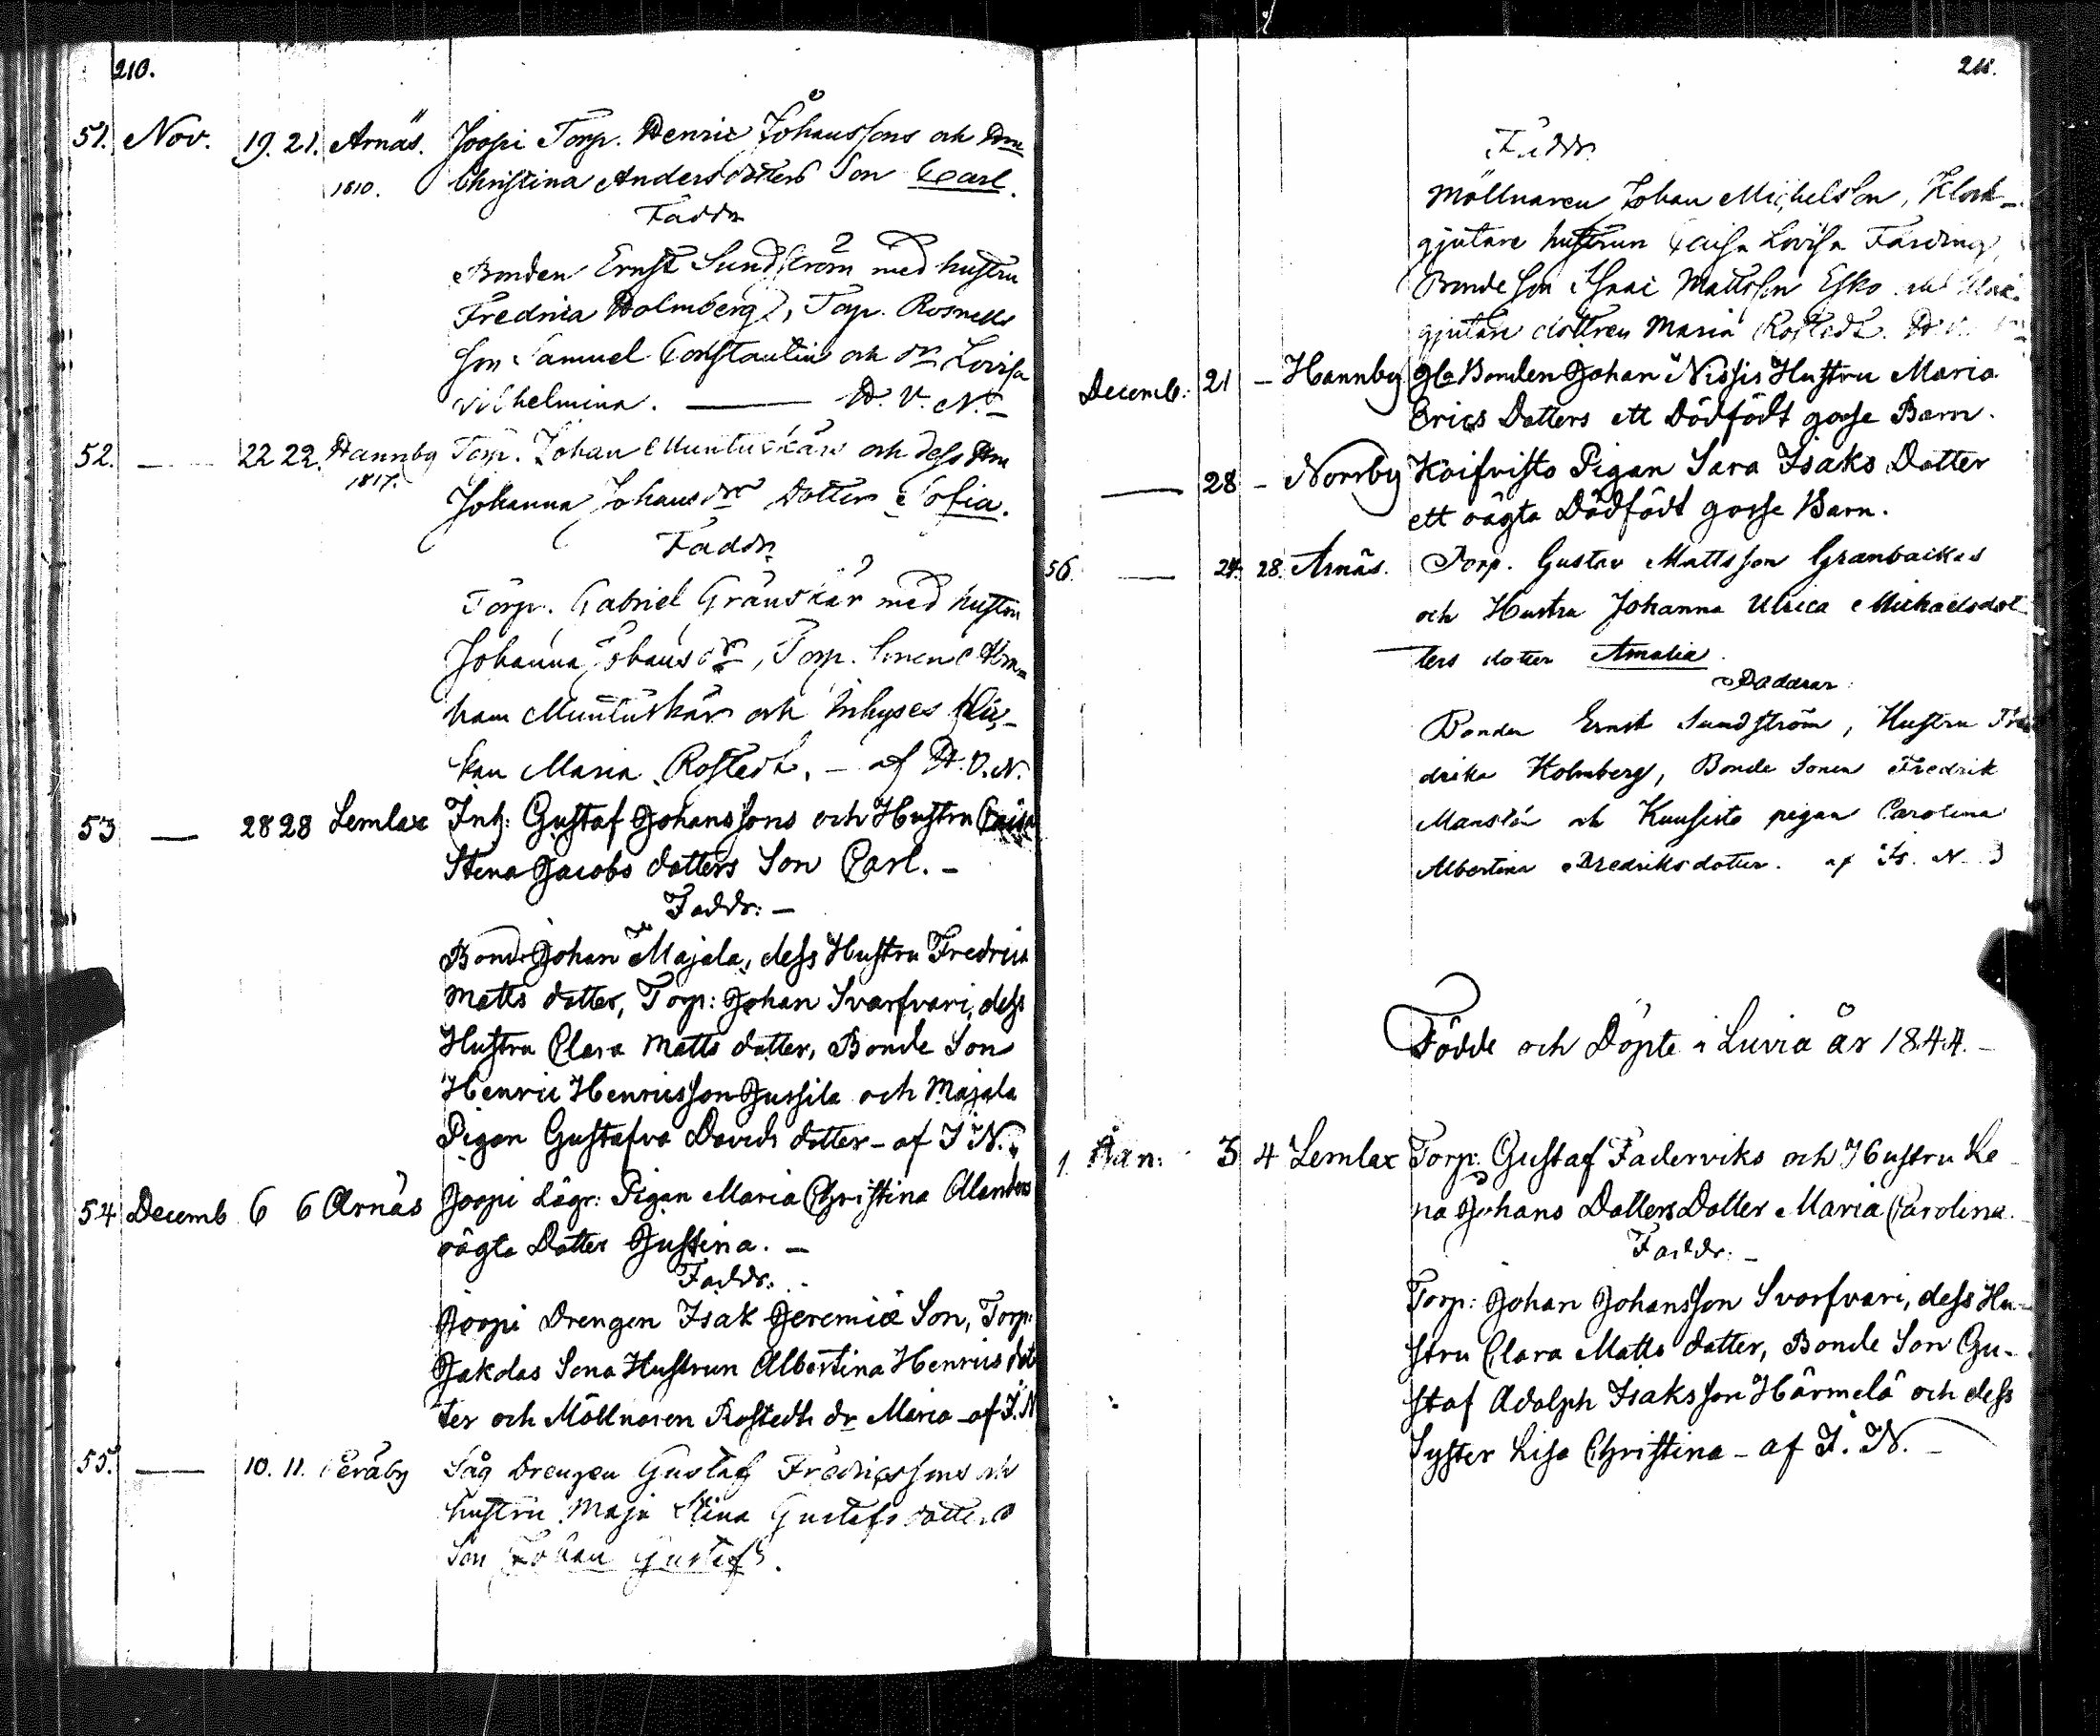 210.
51. Nov. 19. 21. Arnäs. Joopi Torp. Henric Johanssons och Hru
1810. Christina Andersdotters Son Carl.
Faddr
Bonden Ernst Sundström med hustru
Fredrica Holmberg, Torp. Rosnells
son Samuel Constantin och dr Lovisa
Vilhelmina. — H. V. N.
52. — 22 22. Hannby Torp. Johan Muntuskärs och dess Hru
1817. Johanna Johansdrs Dotter Sofia.
Faddr
Torp. Gabriel Gräuskär med hustru
Johanna Johansdr, Torp. Sonen Abra-
ham Muntuskär och Inhyses flic-
kan Maria Rostedt. - af H. V. N.
53 — 28 28 Lemlax Inh: Gustaf Johanssons och Hustru Caisa
Stena Jacobs dotters Son Carl. -
Faddr: -
Bond: Johan Majala, dess Hustru Fredrica
Matts dotter, Torp: Johan Svarfvari, dess
Hustru Clara Matts dotter, Bonde Son
Henric Henricsson Jussila och Majala
Pigan Gustafva Davids dotter - af I N.
54 Decemb 6 6 Arnäs Joopi Lägr: Pigan Maria Christina
oägta Dotter Justina. -
Faddr: -
Joopi Drengen Isak Jeremiæ Son, Torp:
Jakolas Sona Hustrun Albertina Henrics dot
ter och Möllnaren Rostedts dr Maria - af I. N
55. — 10. 11. Peräby Såg Drengen Gustaf Fredricssons och
hustru Maja Stina Gustafsdotters
Son Johan Gustaf.
211.
Faddr
Möllnaren Johan Michelsson, Klock-
gjutare hustrun Caisa Lovisa
Bondeson Isaac Mattsson Esko
gjutare dottren Maria Rostedt.
Decemb: 21 - Hannby gla Bonden Johan Nissis Hustru Maria
Erics Dotters ett Dödfödt gosse Barn.
— 28 - Norrby Koifvisto Pigan Sara Isaks Dotter
ett oägta Dödfödt gosse Barn.
56. — 24. 28. Arnäs. Torp. Gustav Mattsson Granbackas
och Hustru Johanna Ulrica Michaelsdot
ters dotter Amalia.
Faddrar:
Bonden Ernst Sundström, Hustru Fre
drika Holmberg, Bonde Sonen Fredrik
och Kuusisto pigan Carolina
Albertina Fredriksdotter. af
Födde och Döpte i Luvia år 1844. -
1. Jan: 3 4 Lemlax Torp: Gustaf Faderviks och Hustru Le
na Johans Dotters Dotter Maria Carolina.
Faddr: -
Torp: Johan Johansson Svarfvari, dess Hu-
stru Clara Matts dotter, Bonde Son Gu-
staf Adolph Isaksson Härmelä och dess
Syster Lisa Christina - af I. N. -